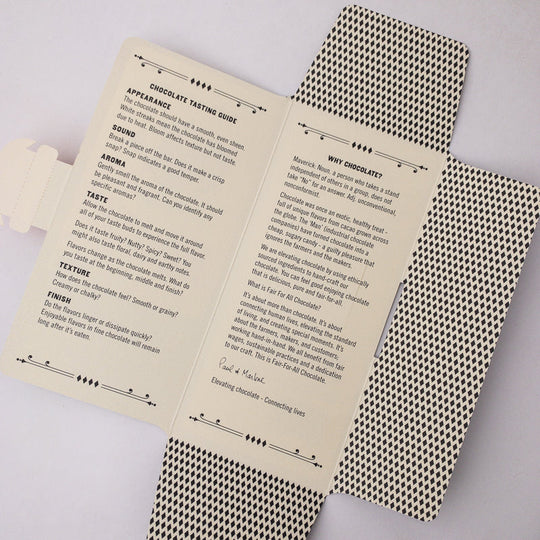 CHOCOLATE TASTING GUIDE
APPEARANCE
The chocolate should have a smooth, even sheen.
White streaks mean the chocolate has bloomed
due to heat. Bloom affects texture but not taste.
SOUND
Break a piece off the bar. Does it make a crisp
snap? Snap indicates a good temper.
AROMA
Gently smell the aroma of the chocolate. It should
be pleasant and fragrant. Can you identify any
specific aromas?
TASTE
Allow the chocolate to melt and move it around
all of your taste buds to experience the full flavor.
Does it taste fruity? Nutty? Spicy? Sweet? You
might also taste floral, dairy and earthy notes.
Flavors change as the chocolate melts. What do
you taste at the beginning, middle and finish?
TEXTURE
How does the chocolate feel? Smooth or grainy?
Creamy or chalky?
FINISH
Do the flavors linger or dissipate quickly?
Enjoyable flavors in fine chocolate will remain
long after it's eaten.
WHY CHOCOLATE?
Maverick: Noun, a person who takes a stand
independent of others in a group, does not
take "No" for an answer. Adj. unconventional,
nonconformist.
Chocolate was once an exotic, healthy treat -
full of unique flavors from cacao grown across
the globe. The 'Man' (industrial chocolate
companies) have turned chocolate into a
cheap, sugary candy - a guilty pleasure that
ignores the farmers and the makers.
We are elevating chocolate by using ethically
sourced ingredients to hand-craft our
chocolate. You can feel good enjoying chocolate
that is delicious, pure and fair-for-all.
What is Fair For All Chocolate?
It's about more than chocolate. It's about
connecting human lives, elevating the standard
of living, and creating special moments. It's
about the farmers, makers, and customers,
working hand-in-hand. We all benefit from fair
wages, sustainable practices and a dedication
to our craft. This is Fair-For-All Chocolate.
Elevating chocolate - Connecting lives